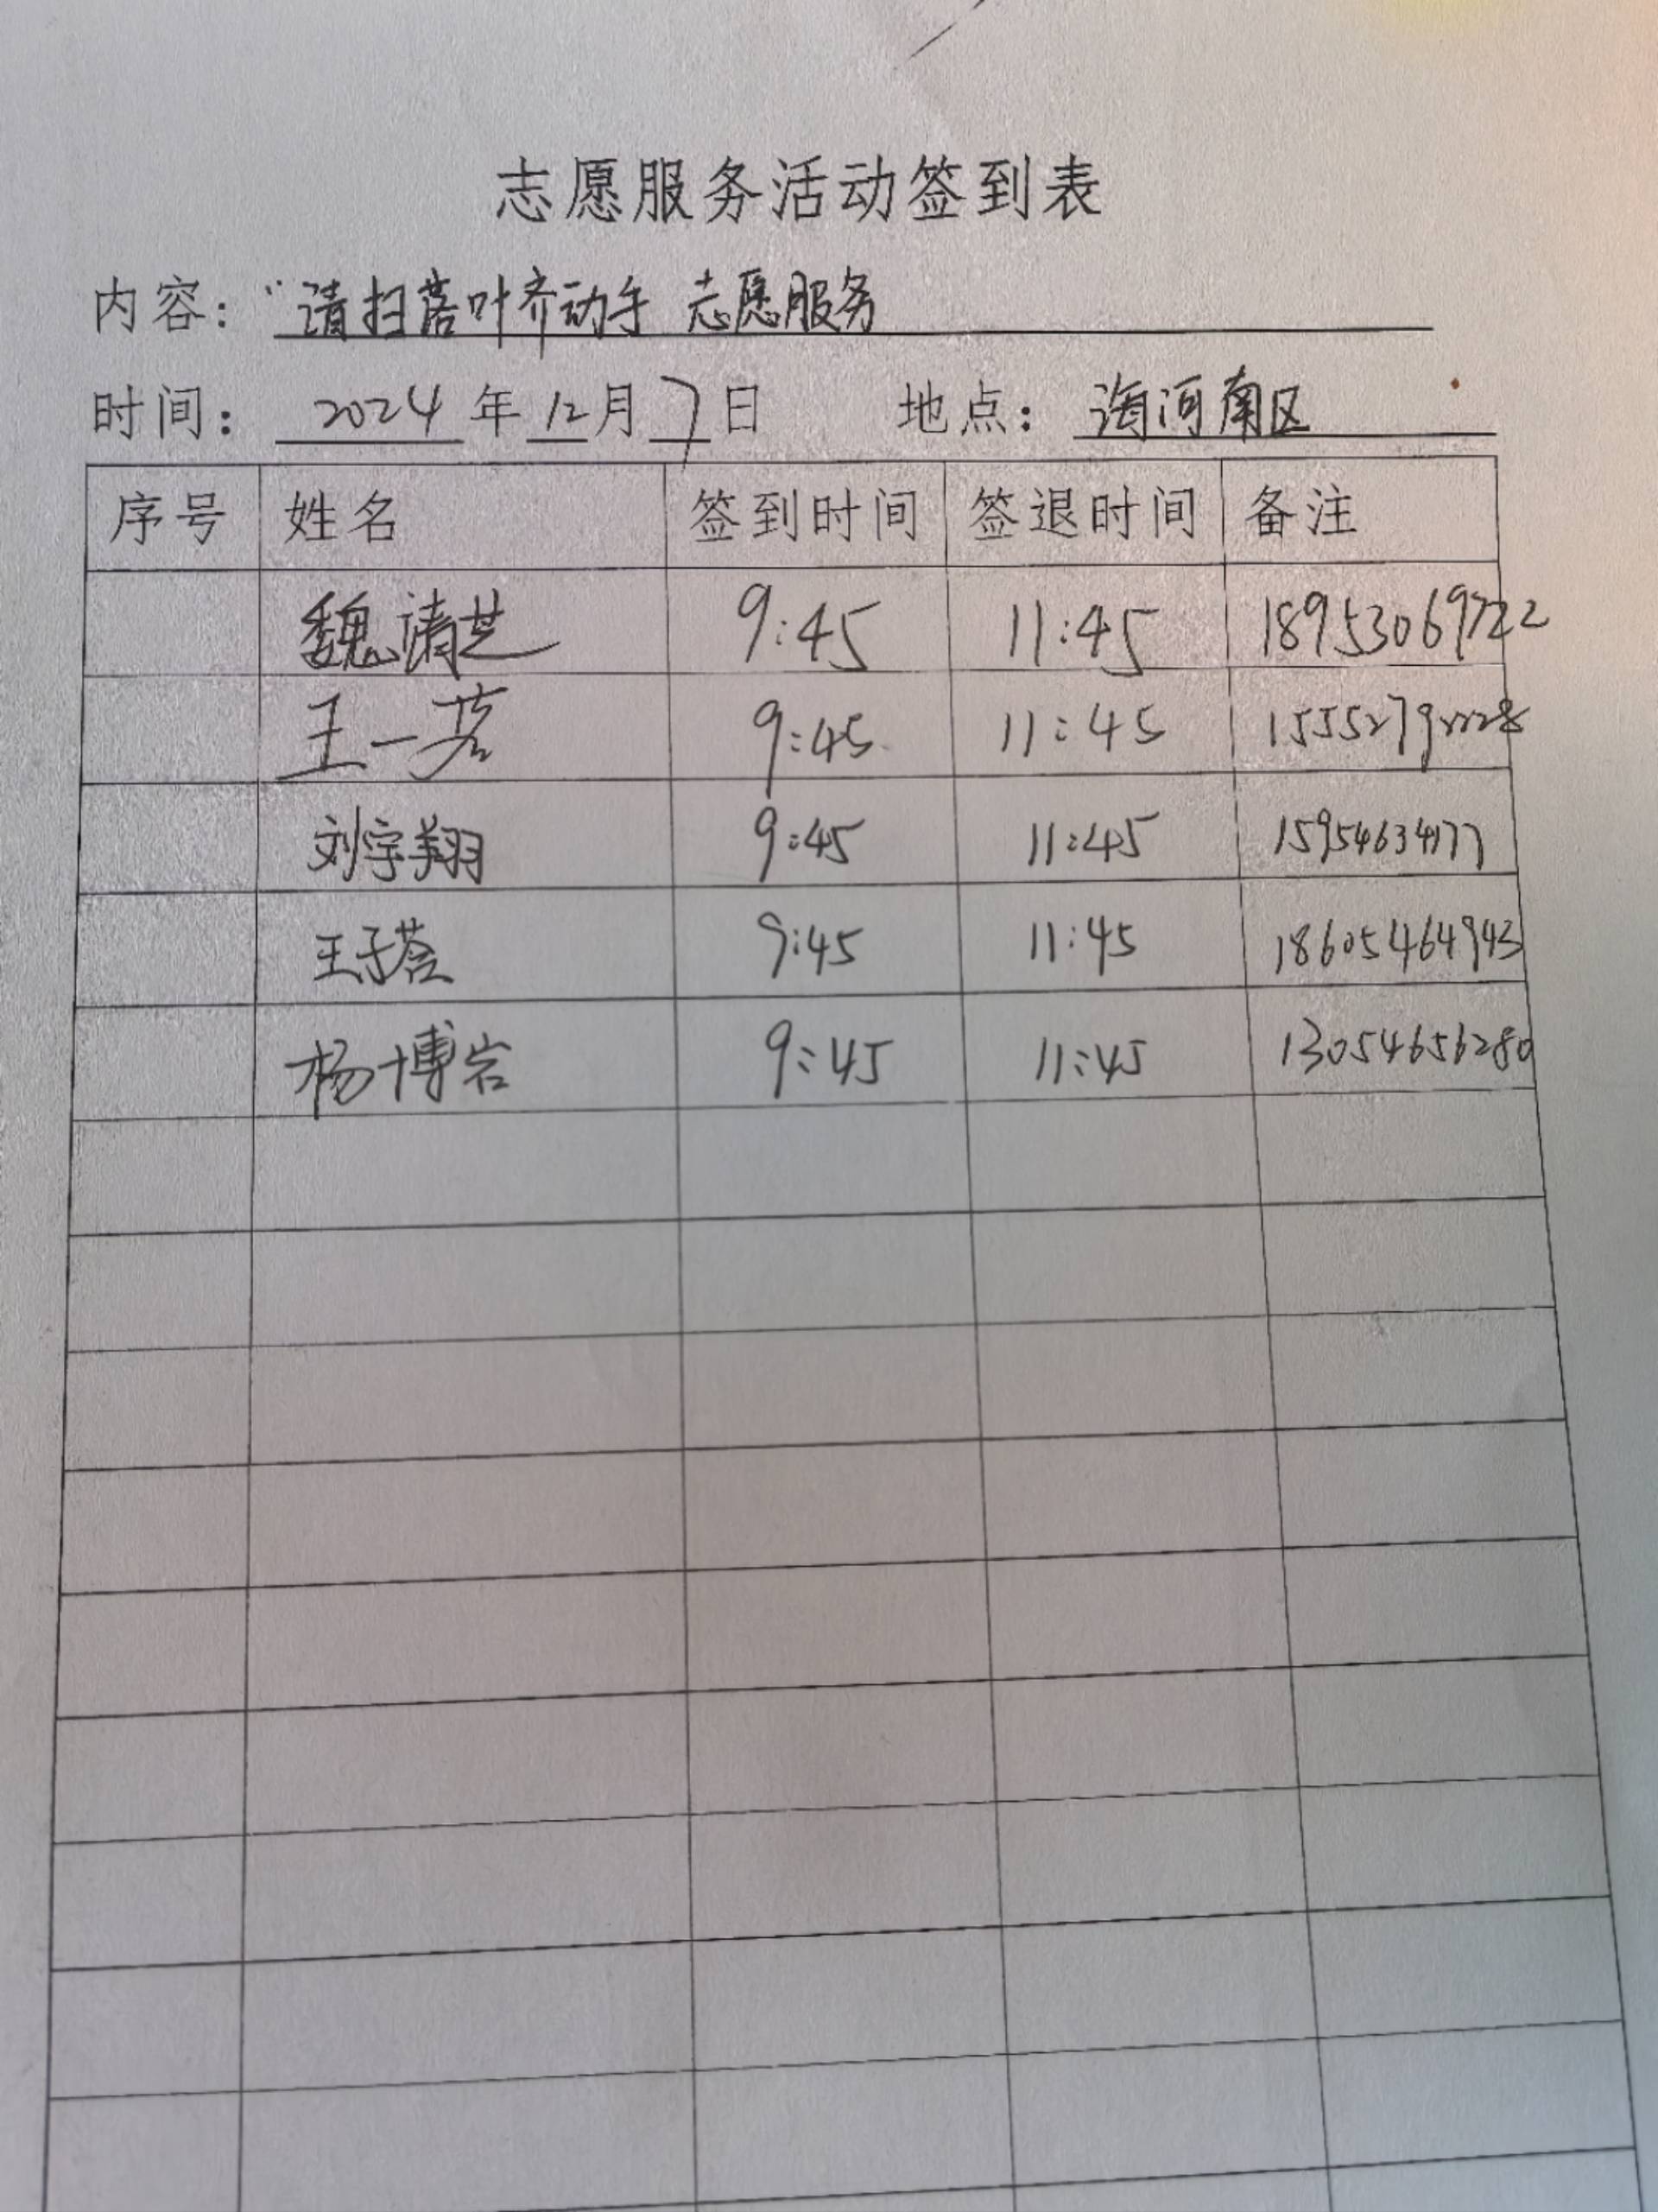 志愿服务活动签到表
内容：“请扫落叶齐动手 志愿服务
时间：2024年12月7日 地点：海河南区
序号 姓名 签到时间 签退时间 备注
魏清芝 9:45 11:45 18953069722
王一茗 9:45 11:45
刘宇翔 9:45 11:45 15954634177
王子荟 9:45 11:45 18605464943
杨博岩 9:45 11:45 13054656280